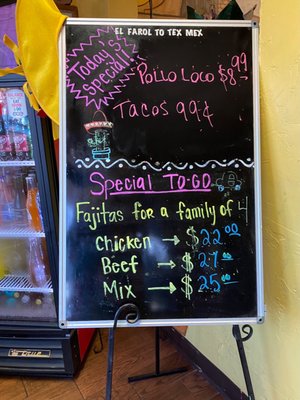 EL FAROL TO TEX MEX
Today's
Special!
Pollo Loco $8.99
Tacos 99¢
Special TO-GO
Fajitas for a family of
Chicken → $22.00
Beef → $27.00
Mix → $25.00
True